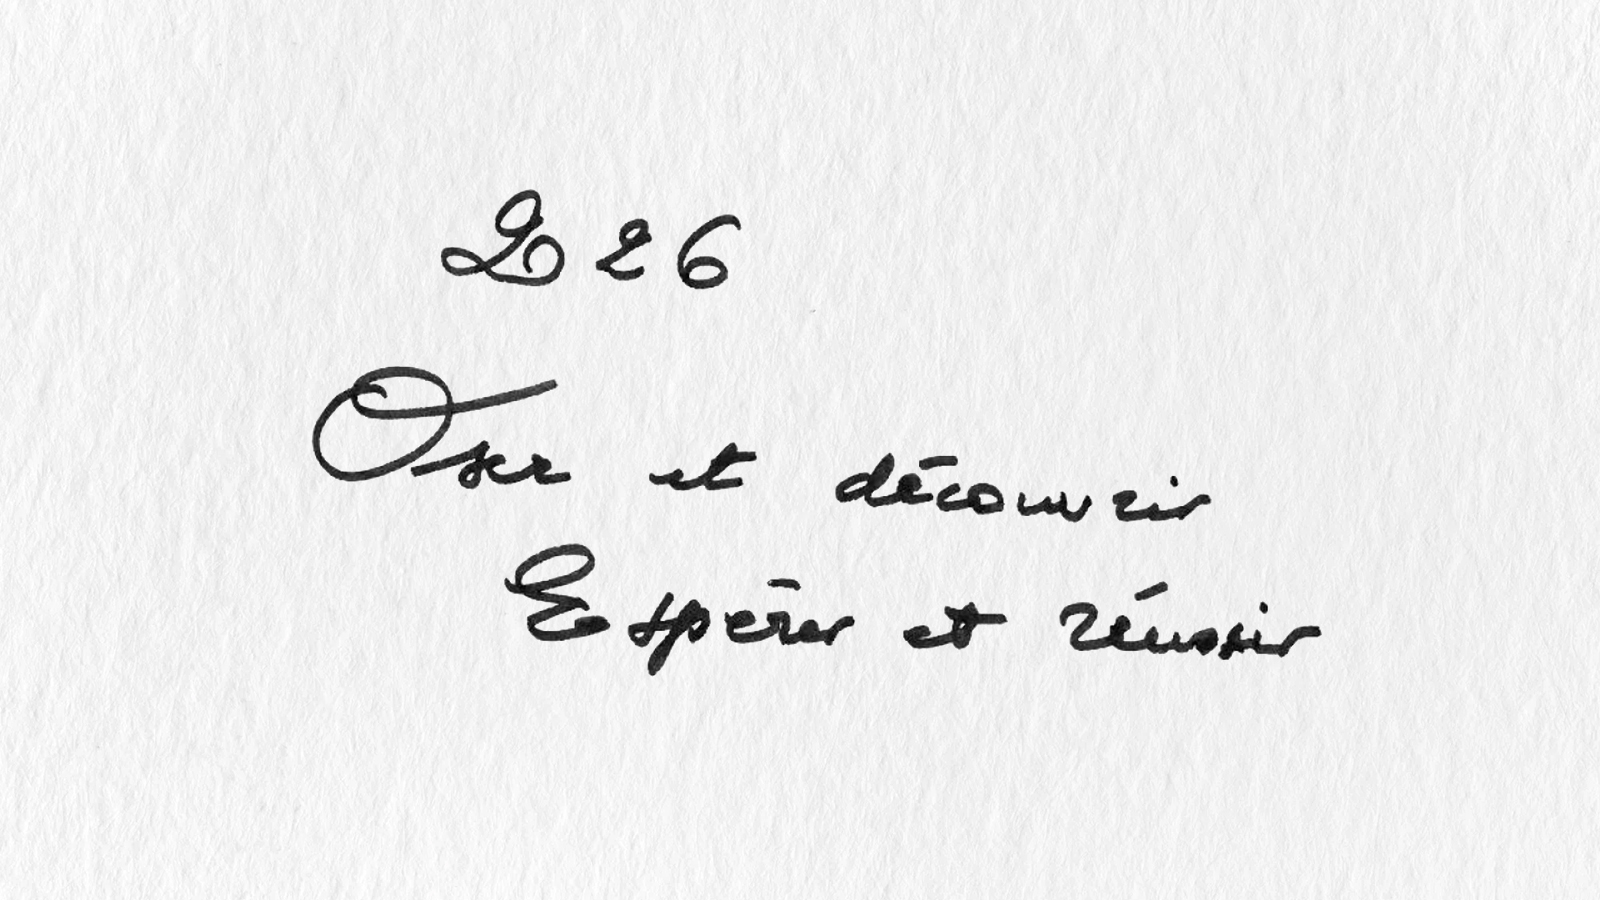 2026
Oser et découvrir
Espérer et réussir